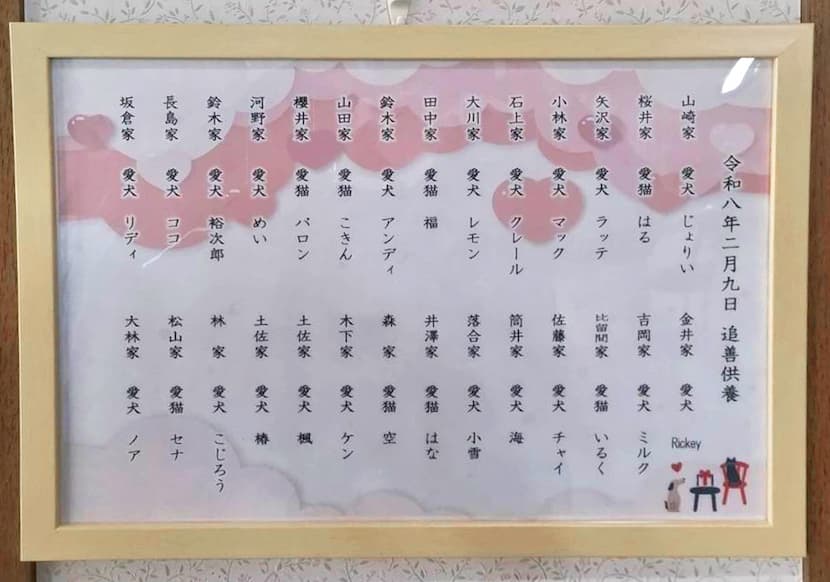 令和八年二月九日 追善供養
山崎家 愛犬 じょりい
桜井家 愛猫 はる
矢沢家 愛犬 ラッテ
小林家 愛犬 マック
石上家 愛犬 クレール
大川家 愛犬 レモン
田中家 愛猫 福
鈴木家 愛犬 アンディ
山田家 愛猫 こきん
櫻井家 愛猫 バロン
河野家 愛犬 めい
鈴木家 愛犬 裕次郎
長島家 愛犬 ココ
坂倉家 愛犬 リディ
金井家 愛犬
吉岡家 愛犬 ミルク
比留間家 愛猫 いるく
佐藤家 愛犬 チャイ
筒井家 愛犬 海
落合家 愛犬 小雪
井澤家 愛猫 はな
森 家 愛猫 空
木下家 愛犬 ケン
土佐家 愛犬 楓
土佐家 愛犬 椿
林 家 愛犬 こじろう
松山家 愛猫 セナ
大林家 愛犬 ノア
Rickey